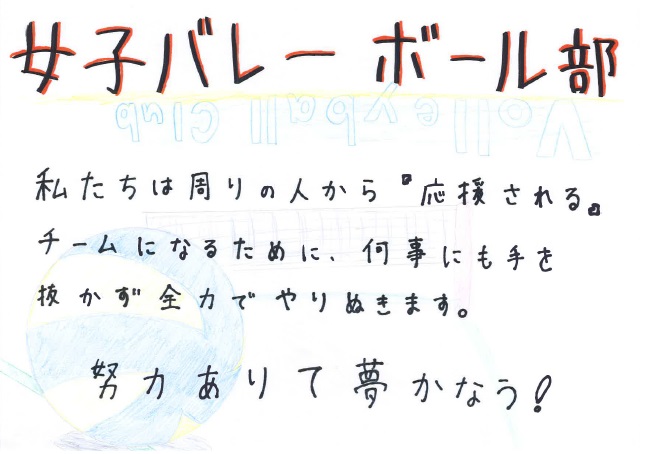 女子バレーボール部
Volleyball club
私たちは周りの人から『応援される』
チームになるために、何事にも手を
抜かず全力でやりぬきます。
努力ありて夢かなう!